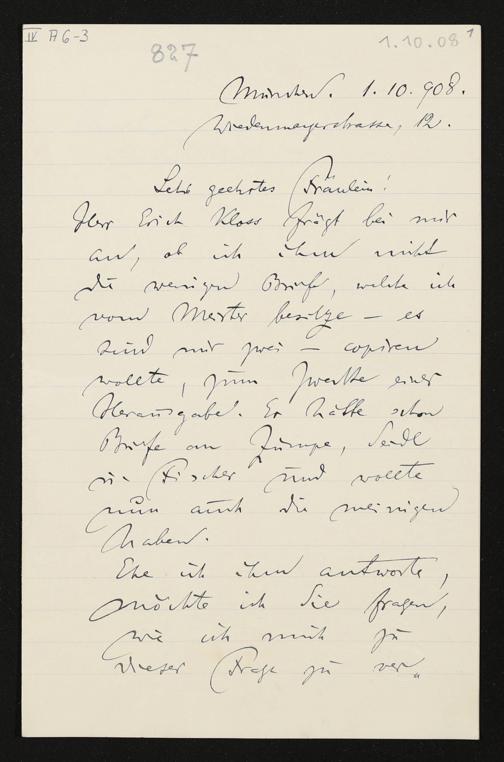 IV A 6-3
827
1.10.08 1
München. 1. 10. 908.
Wiedenmayerstrasse, 12.
Sehr geehrtes Fräulein!
Herr Erich Kloss frägt bei mir
an, ob ich ihm nicht
die wenigen Briefe, welche ich
vom Meister besitze – es
sind nur zwei – copiren
wollte, zum Zwecke einer
Herausgabe. Er hätte schon
Briefe an Zumpe, Seidl
u. Fischer und wollte
nun auch die meinigen
haben.
Ehe ich ihm antworte,
möchte ich Sie fragen,
wie ich mich zu
dieser Frage zu ver„